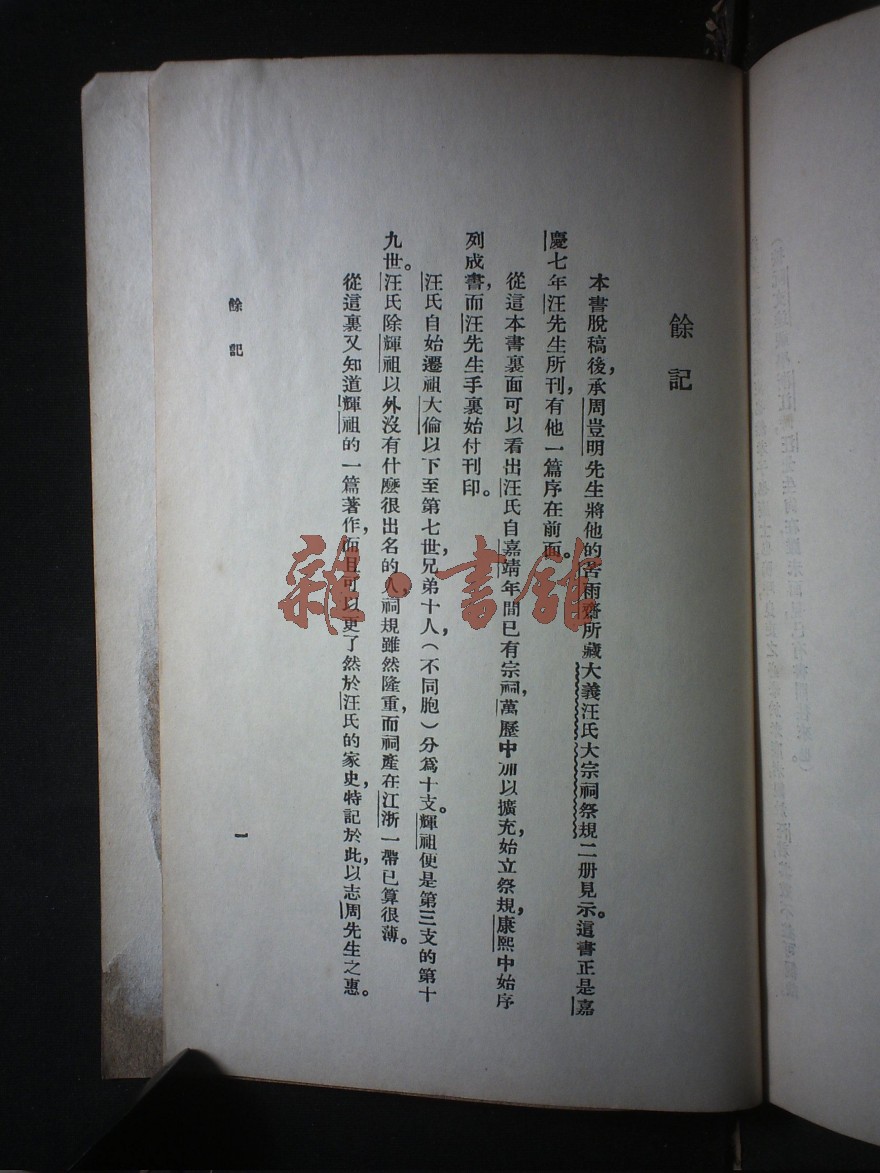 餘記
本書脫稿後，承周豈明先生將他的苦雨齋所藏大義汪氏大宗祠祭規二册見示。這書正是嘉
慶七年汪先生所刊，有他一篇序在前面。
從這本書裏面可以看出汪氏自嘉靖年間已有宗祠，萬歷中加以擴充，始立祭規，康熙中始序
列成書，而汪先生手裏始付刊印。
汪氏自始遷祖大倫以下至第七世兄弟十人（不同胞）分爲十支。輝祖便是第三支的第十
九世。汪氏除輝祖以外沒有什麽很出名的人，祠規雖然隆重，而祠產在江浙一帶已算很薄。
從這裏又知道輝祖的一篇著作，而且可以更了然於汪氏的家史，特記於此，以志周先生之惠。
餘記
一
雜·書館